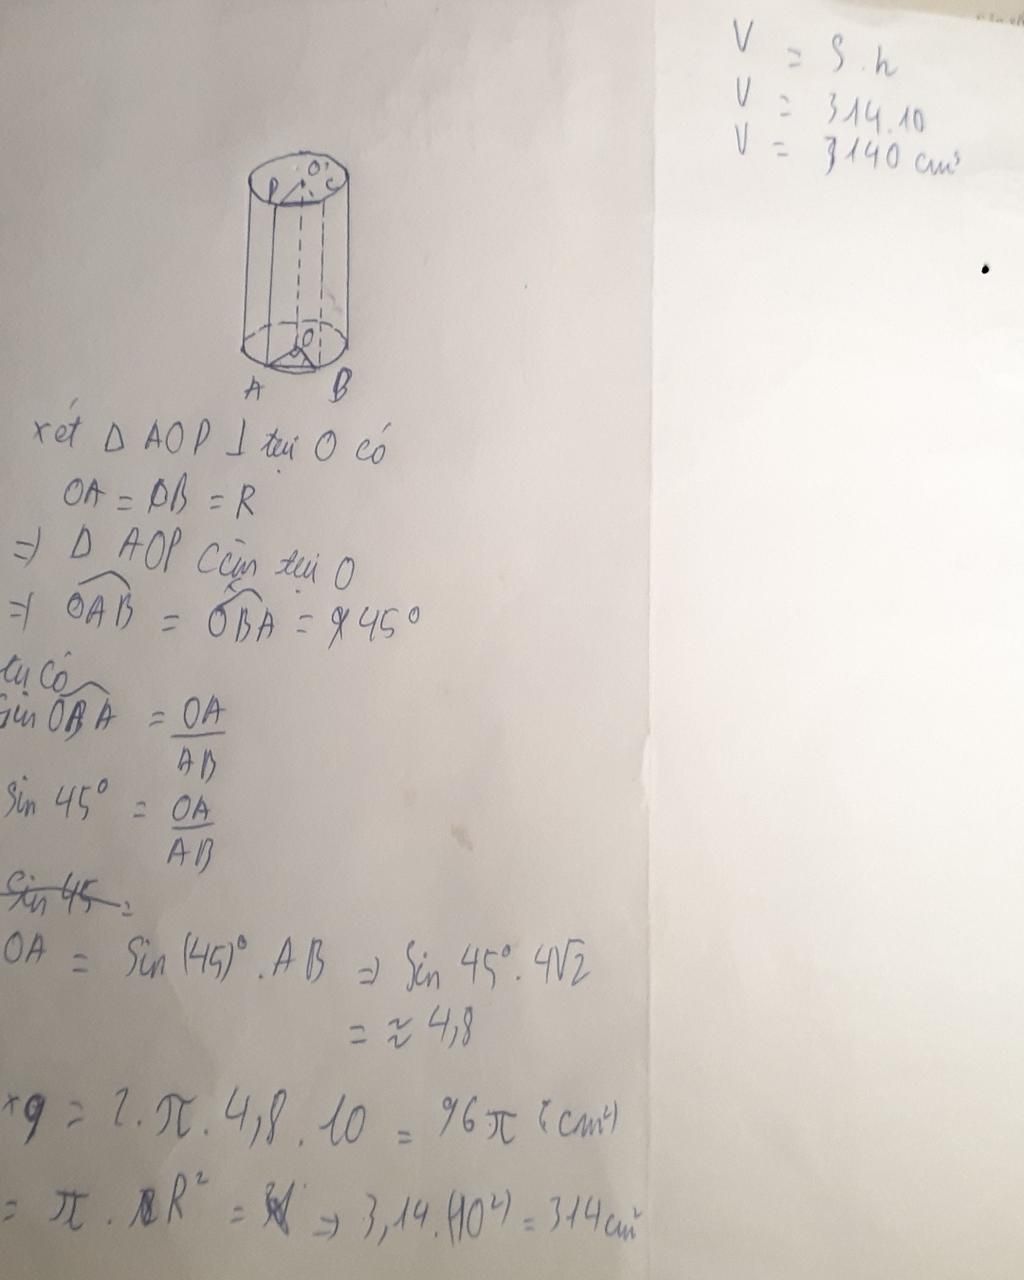 O'
P C
O
A B
xét Δ AOP ⊥ tại O có
OA = OB = R
=> Δ AOP cân tại O
=> OAB = OBA = 45°
ta có
sin OBA = OA/AB
Sin 45° = OA/AB
Sin 45 =
OA = Sin (45)° . AB => Sin 45° . 4√2
= ≈ 4,8
xq = 2 . π . 4,8 . 10 = 96 π (cm²)
= π . R² = => 3,14 . (10²) = 314 cm²
V = S . h
V = 314 . 10
V = 3140 cm³